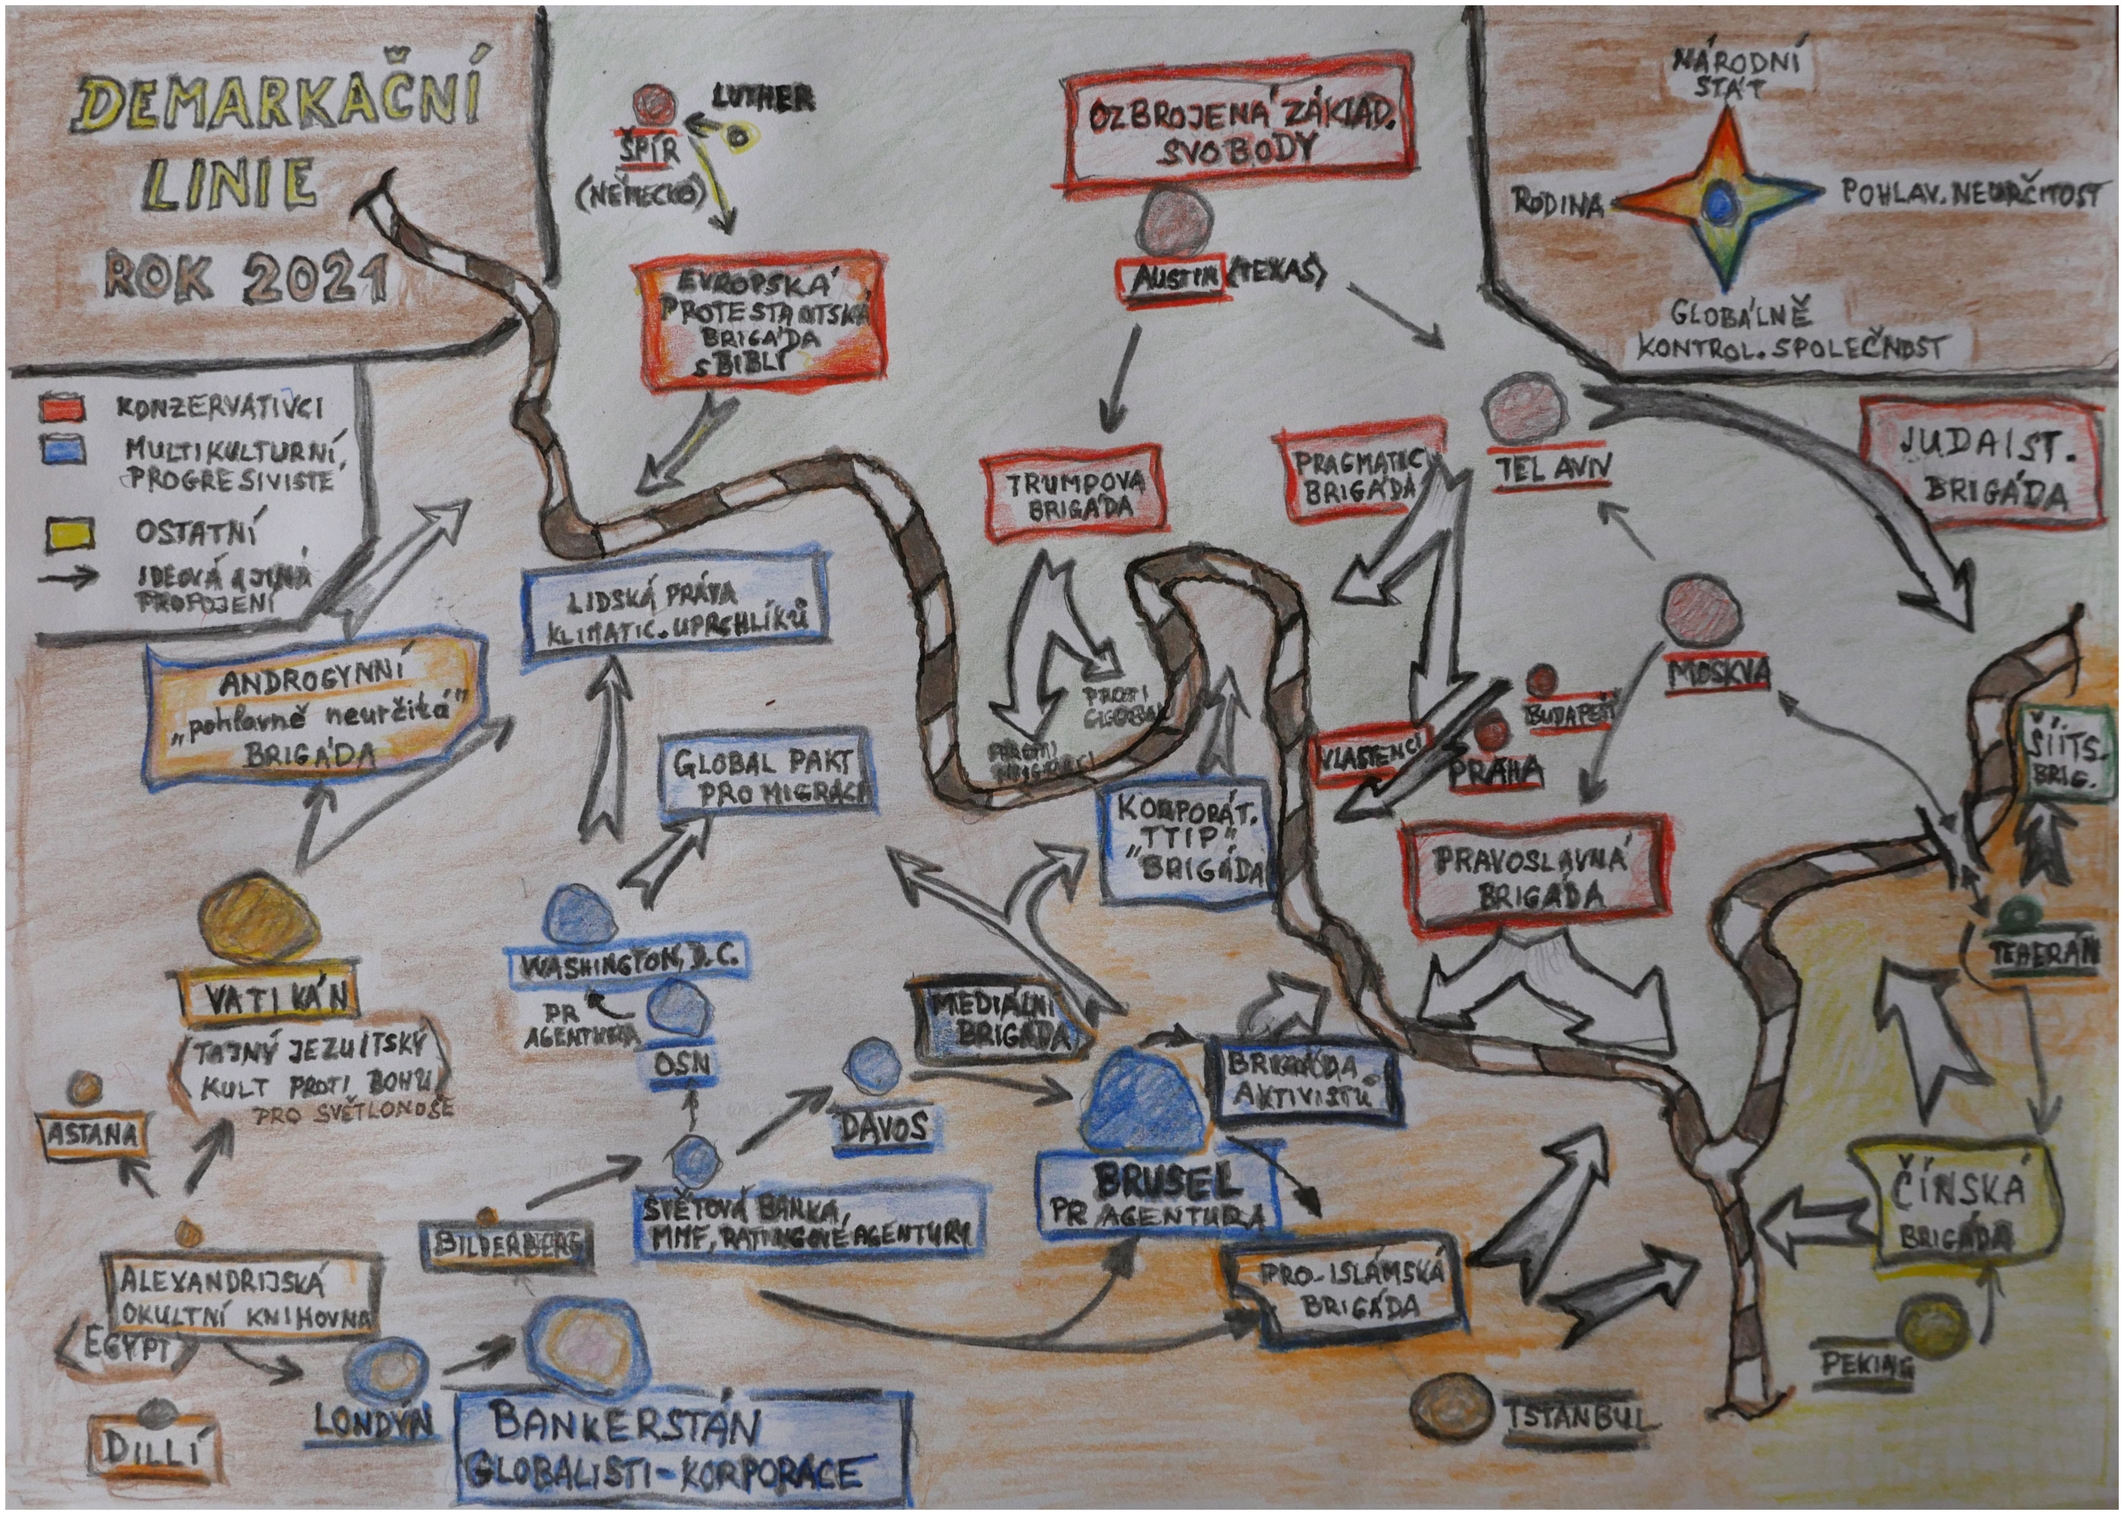 DEMARKAČNÍ
LINIE
ROK 2021
KONZERVATIVCI
MULTIKULTURNÍ,
PROGRESIVISTE
OSTATNÍ
IDEOVÁ A JINÁ
PROPOJENÍ
LUTHER
ŠPÝR
(NĚMECKO)
EVROPSKÁ
PROTESTANTSKÁ
BRIGÁDA
S BIBLÍ
OZBROJENÁ ZÁKLAD.
SVOBODY
AUSTIN (TEXAS)
NÁRODNÍ
STÁT
RODINA
POHLAV. NEURČITOST
GLOBÁLNĚ
KONTROL. SPOLEČNOST
TRUMPOVA
BRIGÁDA
PRAGMATIC.
BRIGÁDA
TEL AVIV
JUDAIST.
BRIGÁDA
LIDSKÁ PRÁVA
KLIMATIC. UPRCHLÍKŮ
ANDROGYNNÍ
„pohlavně neurčitá"
BRIGÁDA
GLOBAL PAKT
PRO MIGRACI
PROTI
GLOBAL
MOSKVA
BUDAPEŠŤ
VLASTENCI
PRAHA
ŠÍITS.
BRIG.
KORPORÁT.
„TTIP"
BRIGÁDA
PRAVOSLAVNÁ
BRIGÁDA
TEHERÁN
VATIKÁN
TAJNÝ JEZUITSKÝ
KULT PROTI BOHU
PRO SVĚTLONOŠE
WASHINGTON, D.C.
PR
AGENTURA
OSN
MEDIÁLNÍ
BRIGÁDA
DAVOS
BRIGÁDA
AKTIVISTŮ
BRUSEL
PR AGENTURA
ASTANA
SVĚTOVÁ BANKA,
MMF, RATINGOVÉ AGENTURY
BILDERBERG
ČÍNSKÁ
BRIGÁDA
PRO-ISLÁMSKÁ
BRIGÁDA
ALEXANDRIJSKÁ
OKULTNÍ KNIHOVNA
EGYPT
PEKING
DILLÍ
LONDÝN
BANKERSTÁN
GLOBALISTI-KORPORACE
ISTANBUL